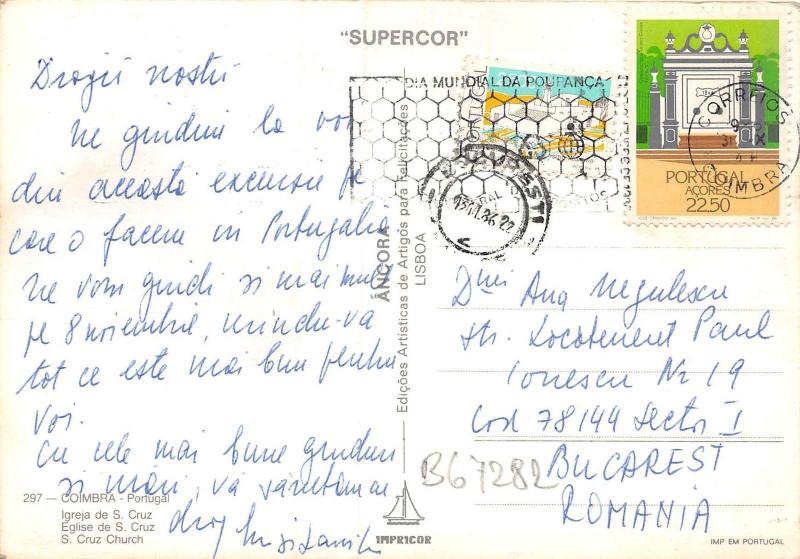 "SUPERCOR"
Dragii noștri
Ne gîndim la voi
din această excursie pe
care o facem în Portugalia
Ne vom gîndi și mai mult
pe 8 noiembrie, urîndu-vă
tot ce este mai bun pentru
voi.
Cu cele mai bune gînduri
și vă sărutăm cu
drag
297 — COIMBRA - Portugal
Igreja de S. Cruz
Église de S. Cruz
S. Cruz Church
ÂNCORA
Edições Artísticas de Artigos para Felicitações
LISBOA
IMPRICOR
DIA MUNDIAL DA POUPANÇA
CORREIOS
COIMBRA
PORTUGAL
AÇORES
22.50
Dnei Ana Negulescu
str. Locotenent Paul
Ionescu Nr 19
Cod 78144 Sector I
BUCAREST
ROMANIA
B67282
IMP EM PORTUGAL